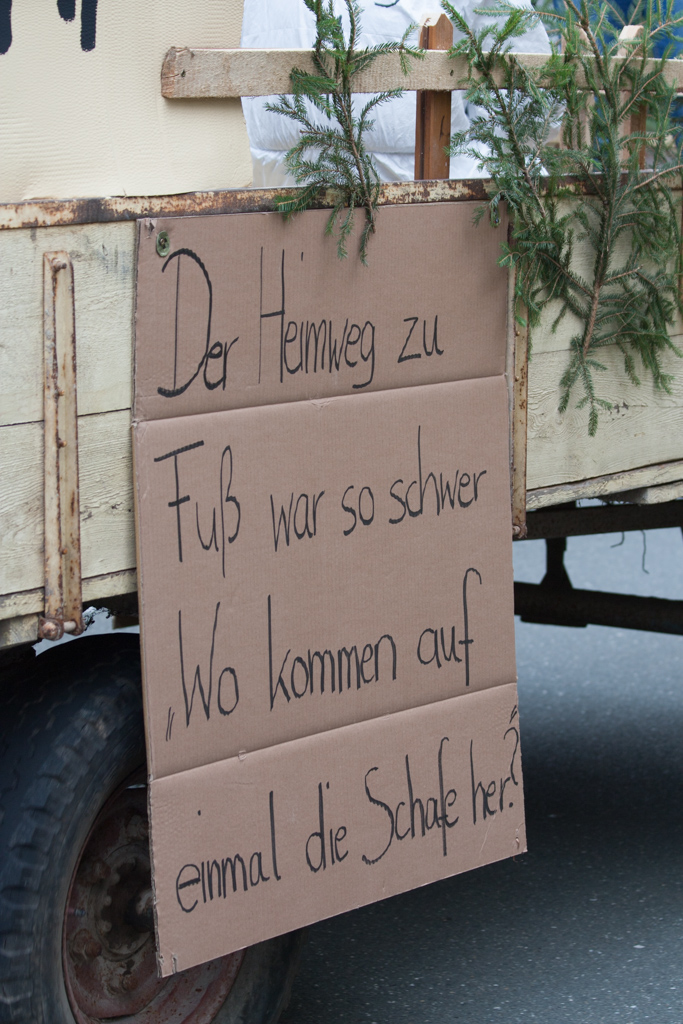 Der Heimweg zu
Fuß war so schwer
„Wo kommen auf
einmal die Schafe her?"